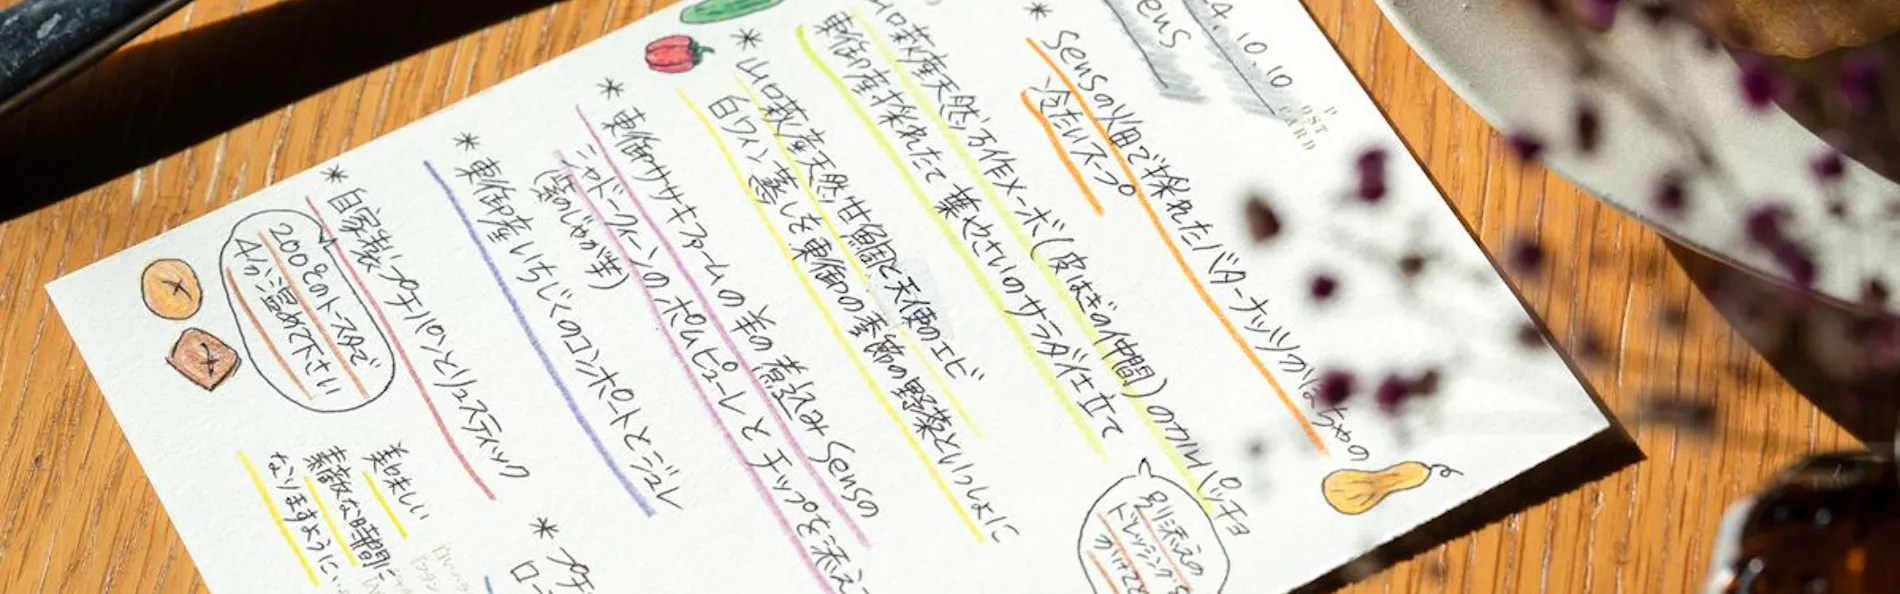 4.10.10
POST CARD
ens
* Sensの火田で採れたバターナッツかぼちゃの
冷たいスープ
山口萩産天然うる作メーボ(皮はぎの仲間)のカルパッチョ
東御産採れたて葉やさいのサラダ仕立て
別添えの
ドレッシングを
かけて
* 山口萩産天然甘鯛と天使のエビ
白ワイン蒸しを東御の季節の野菜といっしょに
* 東御ササキファームの羊の煮込み Sensの
シャドークイーンのポムピューレとチップを添え
(紫のじゃが芋)
* 東御産いちじくのコンポートとジュレ
* 自家製プチパンとリュスティック
200℃のトースターで
4分温めて下さい
* プチ
ロー
美味しい
素敵な時間に
なりますように